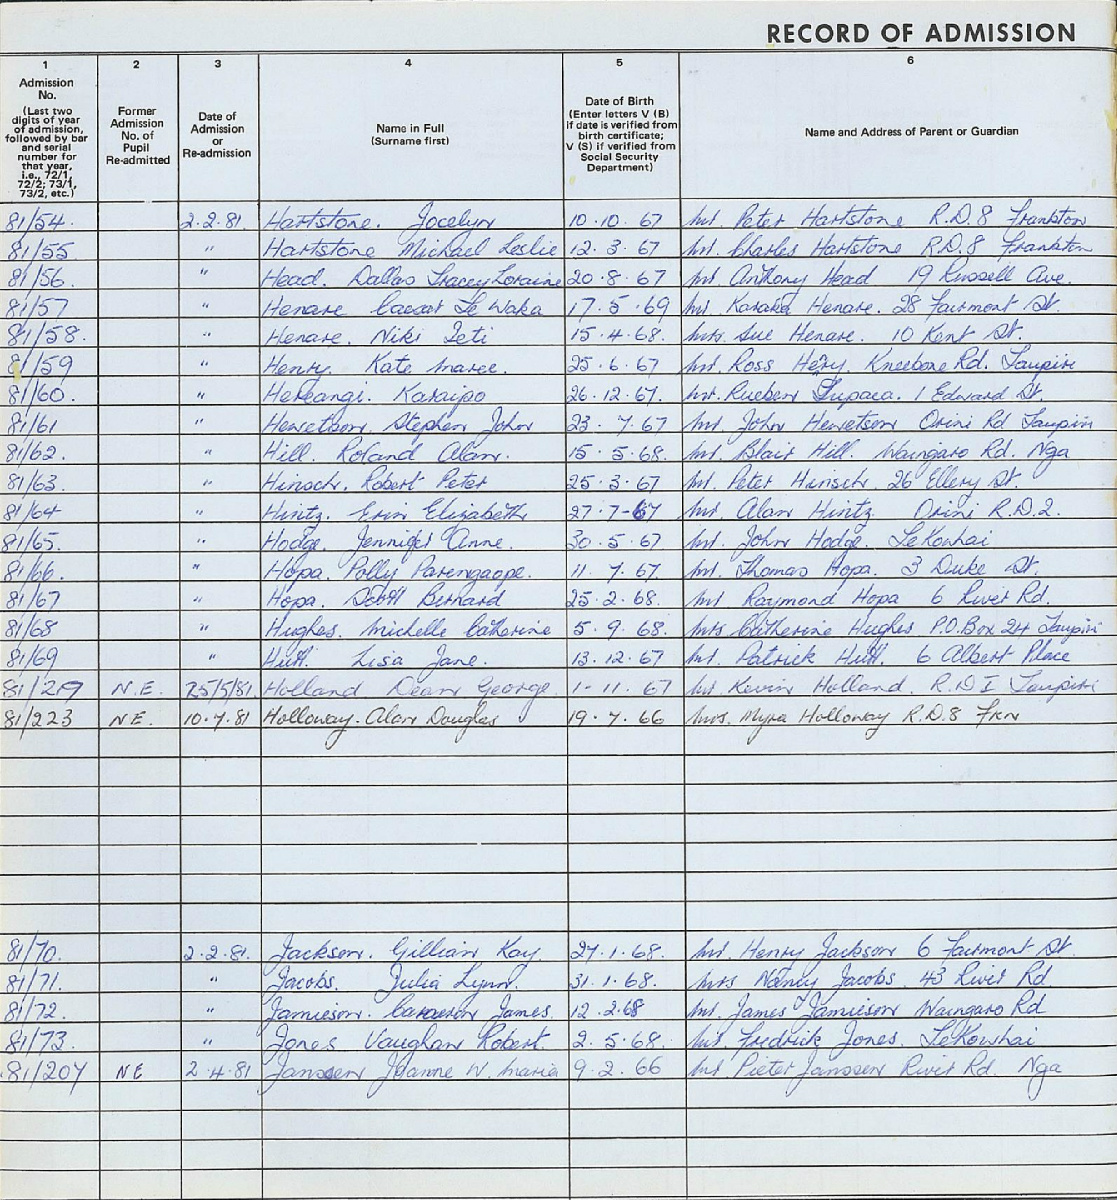 RECORD OF ADMISSION
1 2 3 4 5 6
Admission No. (Last two digits of year of admission, followed by bar and serial number for that year, i.e., 72/1, 72/2; 73/1, 73/2, etc.)
Former Admission No. of Pupil Re-admitted
Date of Admission or Re-admission
Name in Full (Surname first)
Date of Birth (Enter letters V (B) if date is verified from birth certificate; V (S) if verified from Social Security Department)
Name and Address of Parent or Guardian
81/54. 2.2.81. Hartstone. Jocelyn 10.10.67 Mr. Peter Hartstone R.D.8 Frankton
81/55 " Hartstone Michael Leslie 12.3.67 Mr. Charles Hartstone R.D.8 Frankton
81/56. " Head. Dallas Tracey Loraine 20.8.67 Mr. Anthony Head 19 Russell Ave.
81/57 " Henare Caesar Te Waka 17.5.69 Mr. Karaka Henare. 28 Fairmont St.
81/58. " Henare. Niki Teti 15.4.68. Mrs. Sue Henare. 10 Kent St.
81/59 " Henry. Kate Maree. 25.6.67 Mr. Ross Henry. Kneebone Rd. Taupiri
81/60. " Hereangi. Karaipo 26.12.67. Mr. Rueben Tupaea. 1 Edward St.
81/61 " Hewetson. Stephen John 23.7.67 Mr. John Hewetson Orini Rd Taupiri
81/62. " Hill. Roland Alan. 15.5.68. Mr. Blair Hill. Waingaro Rd. Nga
81/63 " Hinsch. Robert Peter 25.3.67 Mr. Peter Hinsch. 26 Ellery St.
81/64 " Hintz. Erin Elizabeth 27-7-67 Mr. Alan Hintz. Orini R.D.2.
81/65. " Hodge. Jennifer Anne. 30.5.67 Mr. John Hodge. TeKowhai
81/66. " Hopa. Polly Parengaope. 11.7.67. Mr. Thomas Hopa. 3 Duke St.
81/67 " Hopa. Scott Bernard 25.2.68. Mr Raymond Hopa 6 River Rd.
81/68 " Hughes. Michelle Catherine 5.9.68. Mrs Catherine Hughes P.O.Box 24 Taupiri
81/69 " Hutt. Lisa Jane. 13.12.67 Mr. Patrick Hutt. 6 Albert Place
81/219 N.E. 25/5/81. Holland Dean George. 1-11.67 Mr Kevin Holland. R.D I Taupiri
81/223 NE. 10.7.81 Holloway. Alan Douglas 19.7.66 Mrs. Myra Holloway R.D.8 Fkn
81/70. 2.2.81. Jackson. Gillian Kay 27.1.68. Mr. Henry Jackson 6 Fairmont St.
81/71. " Jacobs. Julia Lynn. 31.1.68. Mrs Nancy Jacobs. 43 River Rd.
81/72. " Jamieson. Cameron James. 12.2.68 Mr. James Jamieson Waingaro Rd
81/73. " Jones Vaughan Robert. 2.5.68. Mr. Fredrick Jones. TeKowhai
81/207 NE 2.4.81 Janssen Joanne W. Maria 9.2.66 Mr Pieter Janssen River Rd. Nga